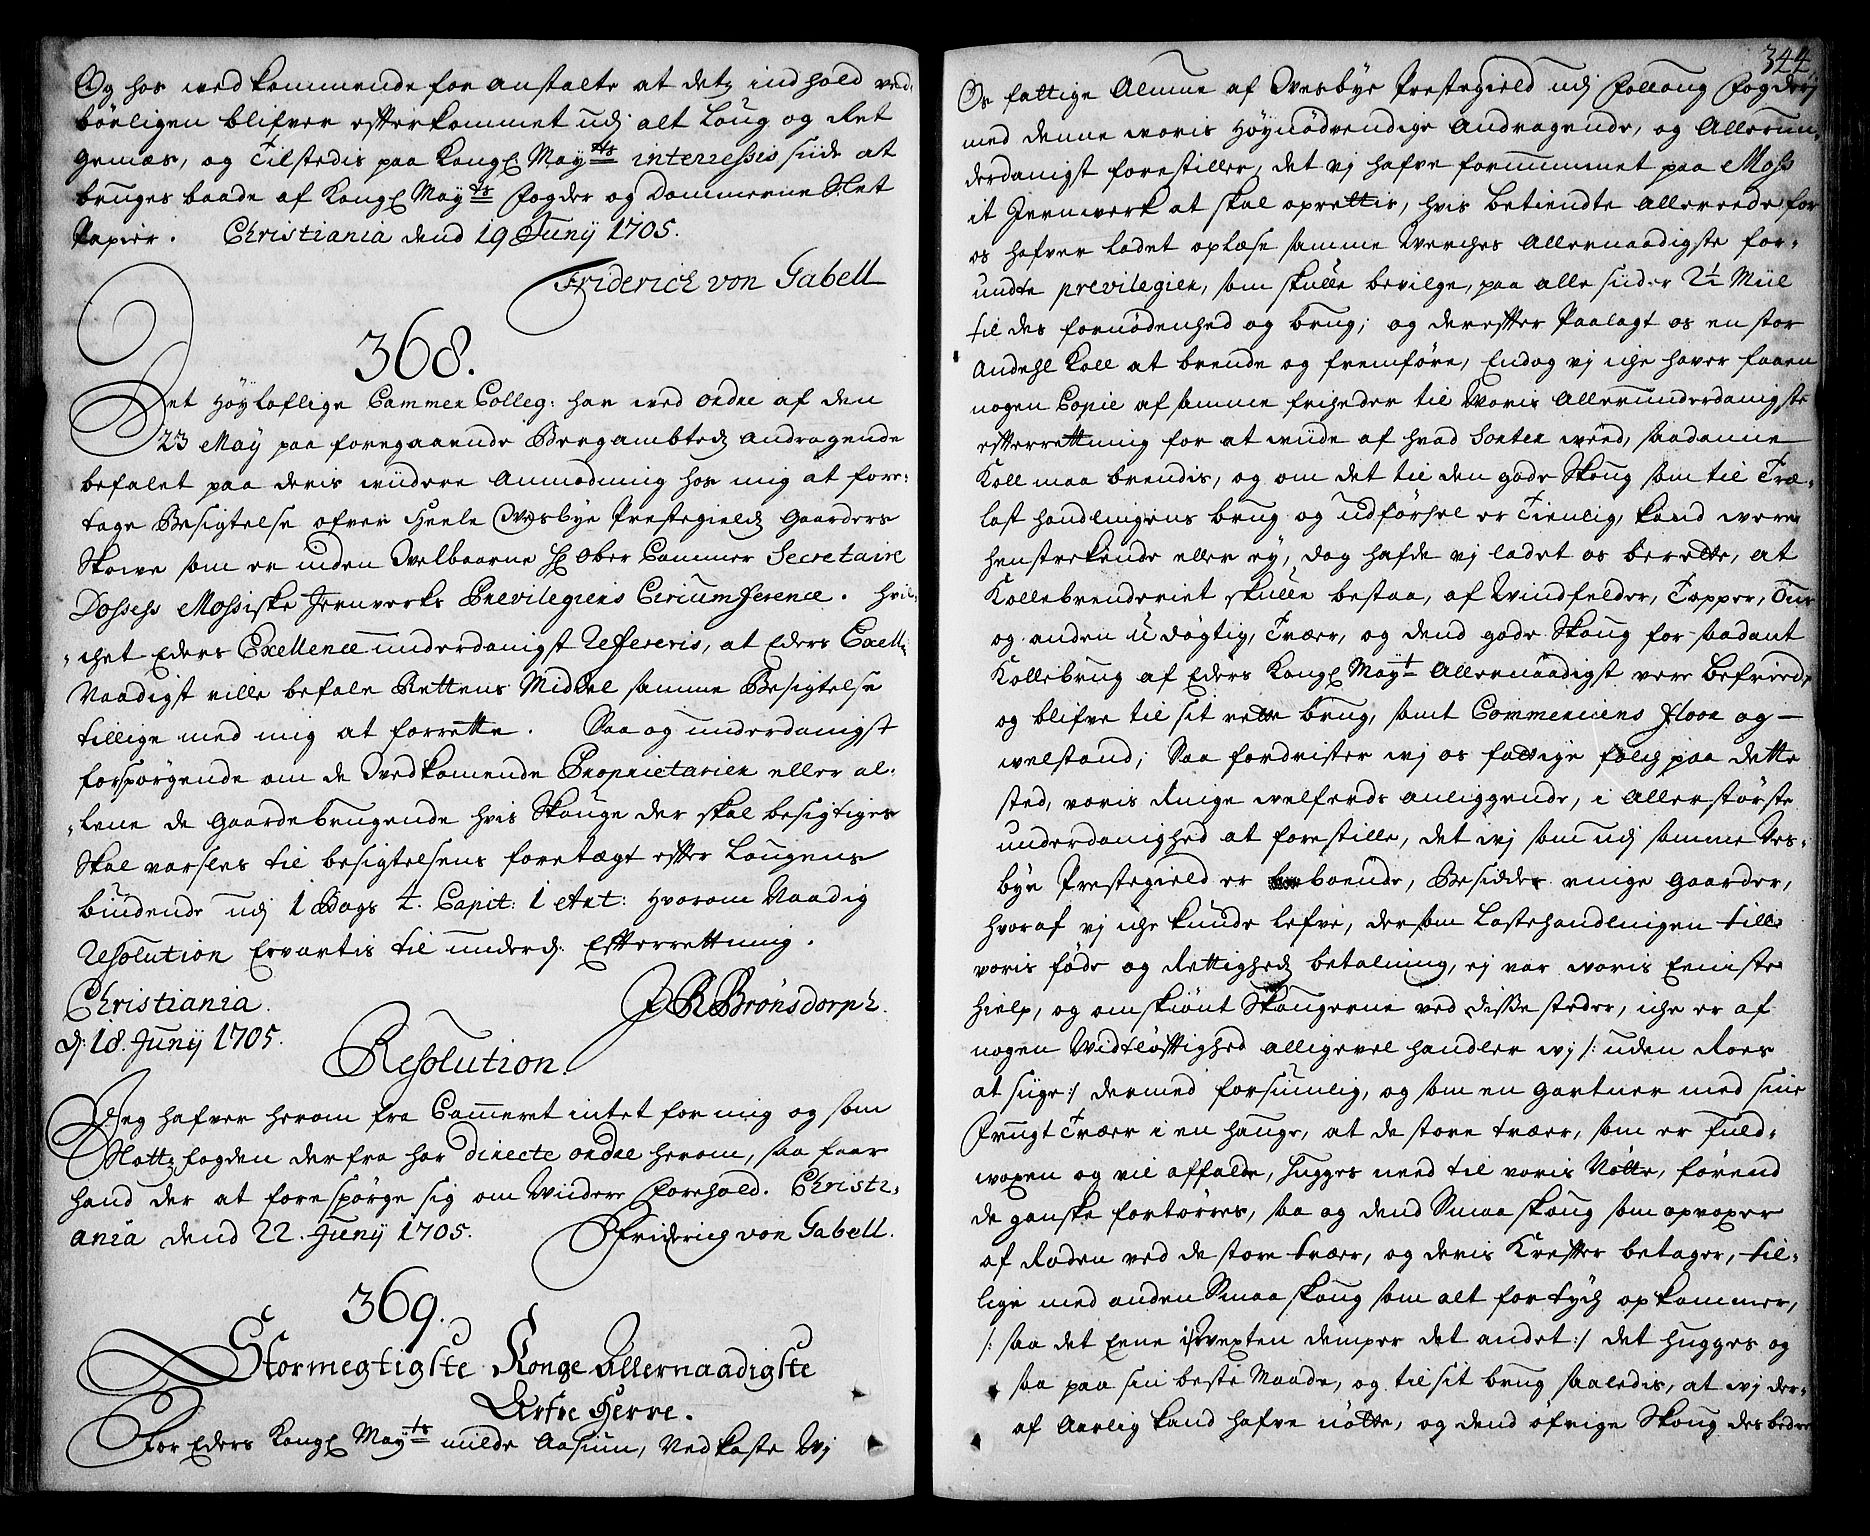 Og hos wedkommende foranstalte at detz indhold ved-
börligen blifver effterkommet udj alt Loug og Ret
gemæs, og Tilstedis paa Kongl May:ts interresses siide at
bruges baade af Kongl May:ts Fogder og Dommerne Slet
Papiir. Christiania dend 19 Junij 1705.
Friderich von Gabell
368.
Det Höyloflige Cammer Colleg: har wed ordre af den
23 May paa foregaaende Bergambtedz andragende
befalet paa deris wiidere Anmodning hos mig at fore-
tage Besigtelse ofver Heele Westbye Prestegieldz Gaarders
Skowe som er inden Welbaarne Hr Ober Cammer Secretaire
Dosses Mossiske Jernwerks Previlegiens Circumference. hvil-
chet Eders Exellence underdanigst Refereris, at Eders Exell:
Naadigst ville befale Rettens Middel samme Besigtelse
tillige med mig at forrette. Saa og underdanigst
forspörgende om de Wedkomende Proprietarier eller al-
lene de Gaardebrugende hvis Skouge der skal besigtiges
skal varsles til besigtelsens foretægt effter Lougens
bindende udj 1 Bogs 4. Capit: 1 Art: hvorom Naadig
Resolution Ervartis til underd: Effterrettning.
Christiania.
d: 18. Junij 1705.
J R Brönsdorph.
Resolution.
Jeg hafver herom fra Cammeret intet for mig og som
Slottzfogden derfra har directe ordre herom, saa faar
hand der at forespörge sig om Wiidere Forhold. Christi-
ania dend 22. Junij 1705. Friderich von Gabell.
369.
Stormegtigste Konge Allernaadigste
Arfve Herre.
For Eders Kongl May:ts milde Aasiun, Nedkaste Wj
344.
Os fattige Almue af Wesbye Prestegield udj Folloug Fogderj
med denne woris höynödvendige Andragende, og Allerun-
derdanigst forestiller, det vj hafve fornummet paa Moss
it Jernwerk at skal oprettis, hvis betiendte allereede for
os hafver ladet oplæse samme Werches Allernaadigste for-
undte previlegier, som skulle bevilge, paa alle siider 2½ Miil
til des fornödenhed og brug; og dereffter Paalagt os en stor
Andehl Koll at brende og fremföre, Endog vj iche haver faaen
nogen Copie af samme friheder til Woris Allerunderdanigste
effterrettning for at wiide af hvad Sorter weed, saadanne
Koll maa brendis, og om det til den gode Skoug som til Træ-
last handlingens brug og udförsel er Tienlig, kand were
henstrekende eller ey, dog hafde vj ladet os berette, at
Kollebrenderiet skulle bestaa, af Windfelder, Topper,
og anden udögtig, Træer, og dend gode Skoug for saadant
Kollebrug af Eders Kongl May:t Allernaadigst vere befriedt,
og blifve til sit rette brug, samt Commerciens Floor og
welstand; Saa fordrister wj os fattige folch paa dette
sted, voris Ringe welferds anliggende, i Allerstörste
underdanighed at forestille, det wj som udj samme Ves-
bye Prestegield er boende, Besidder ringe Gaarder,
hvoraf vj iche kunde lefve, dersom Lastehandlingen till
voris föde og Rettighedz betalning, ej var woris Eeniste
hielp, og omskiönt Skougerne ved disse steder, iche er af
nogen Widtlöfftighed alligevel handler wj /: uden Roes
at siige :/ dermed forsunlig, og som en Gartner med sine
Frugt Træer i en hauge, at de store træer, som er fuld-
woxen og vil affalde, hugges need til voris Nötte, förend
de ganske fortörres, saa og dend Smaa skoug som opvoxer
af Roden ved de store træer, og deris Kreffter betager, til-
lige med anden Smaa skoug som alt for tych opkommer,
/: saa det Eene i wexten demper det andet :/ det hugges og
saa paa sin beste Maade, og til sit brug saaledis, at wj der-
af Aarlig kand hafve nötte, og dend öfrige Skoug des bedre